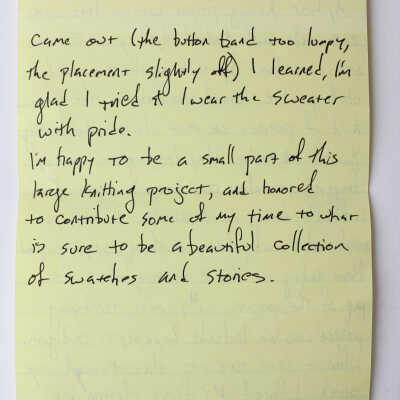 Came out (the button band too lumpy,
the placement slightly off) I learned, I'm
glad I tried it I wear the sweater
with pride.
I'm happy to be a small part of this
large knitting project, and honored
to contribute some of my time to what
is sure to be a beautiful collection
of swatches and stories.